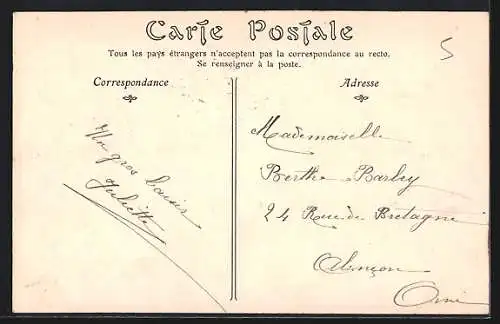 Carte Postale
5
Tous les pays étrangers n'acceptent pas la correspondance au recto.
Se renseigner à la poste.
Correspondance
Un gros baiser
Juliette
Adresse
Mademoiselle
Berthe Barbey
24 Rue de Bretagne
Alençon
Orne